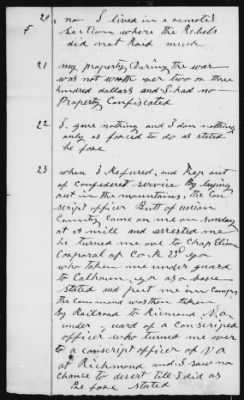 20 no I lived in a remote
F Section where the Rebels
did not Raid much
21 my property During the war
was not worth over two or three
hundred dollars and I had no
Property Confiscated
22 I gave nothing and I don nothing
only as forced to do as stated
be fore
23 when I Refused and Kep out
of confederet service By laying
out in the mountains, the Con
script officer But of union
County came on me on Sunday
at A mill and arrested me
he turned me over to
Corporal of Co K 23 ga
who taken me under guard
to Calhoun ga as above
stated and put me in Camps
the command was then taken
By Railroad to Richmond Va
under guard of a conscriped
officer who turned me over
to a conscript officer of VA
at Richmond and I saw no
chance to desert till I did as
Be fore stated